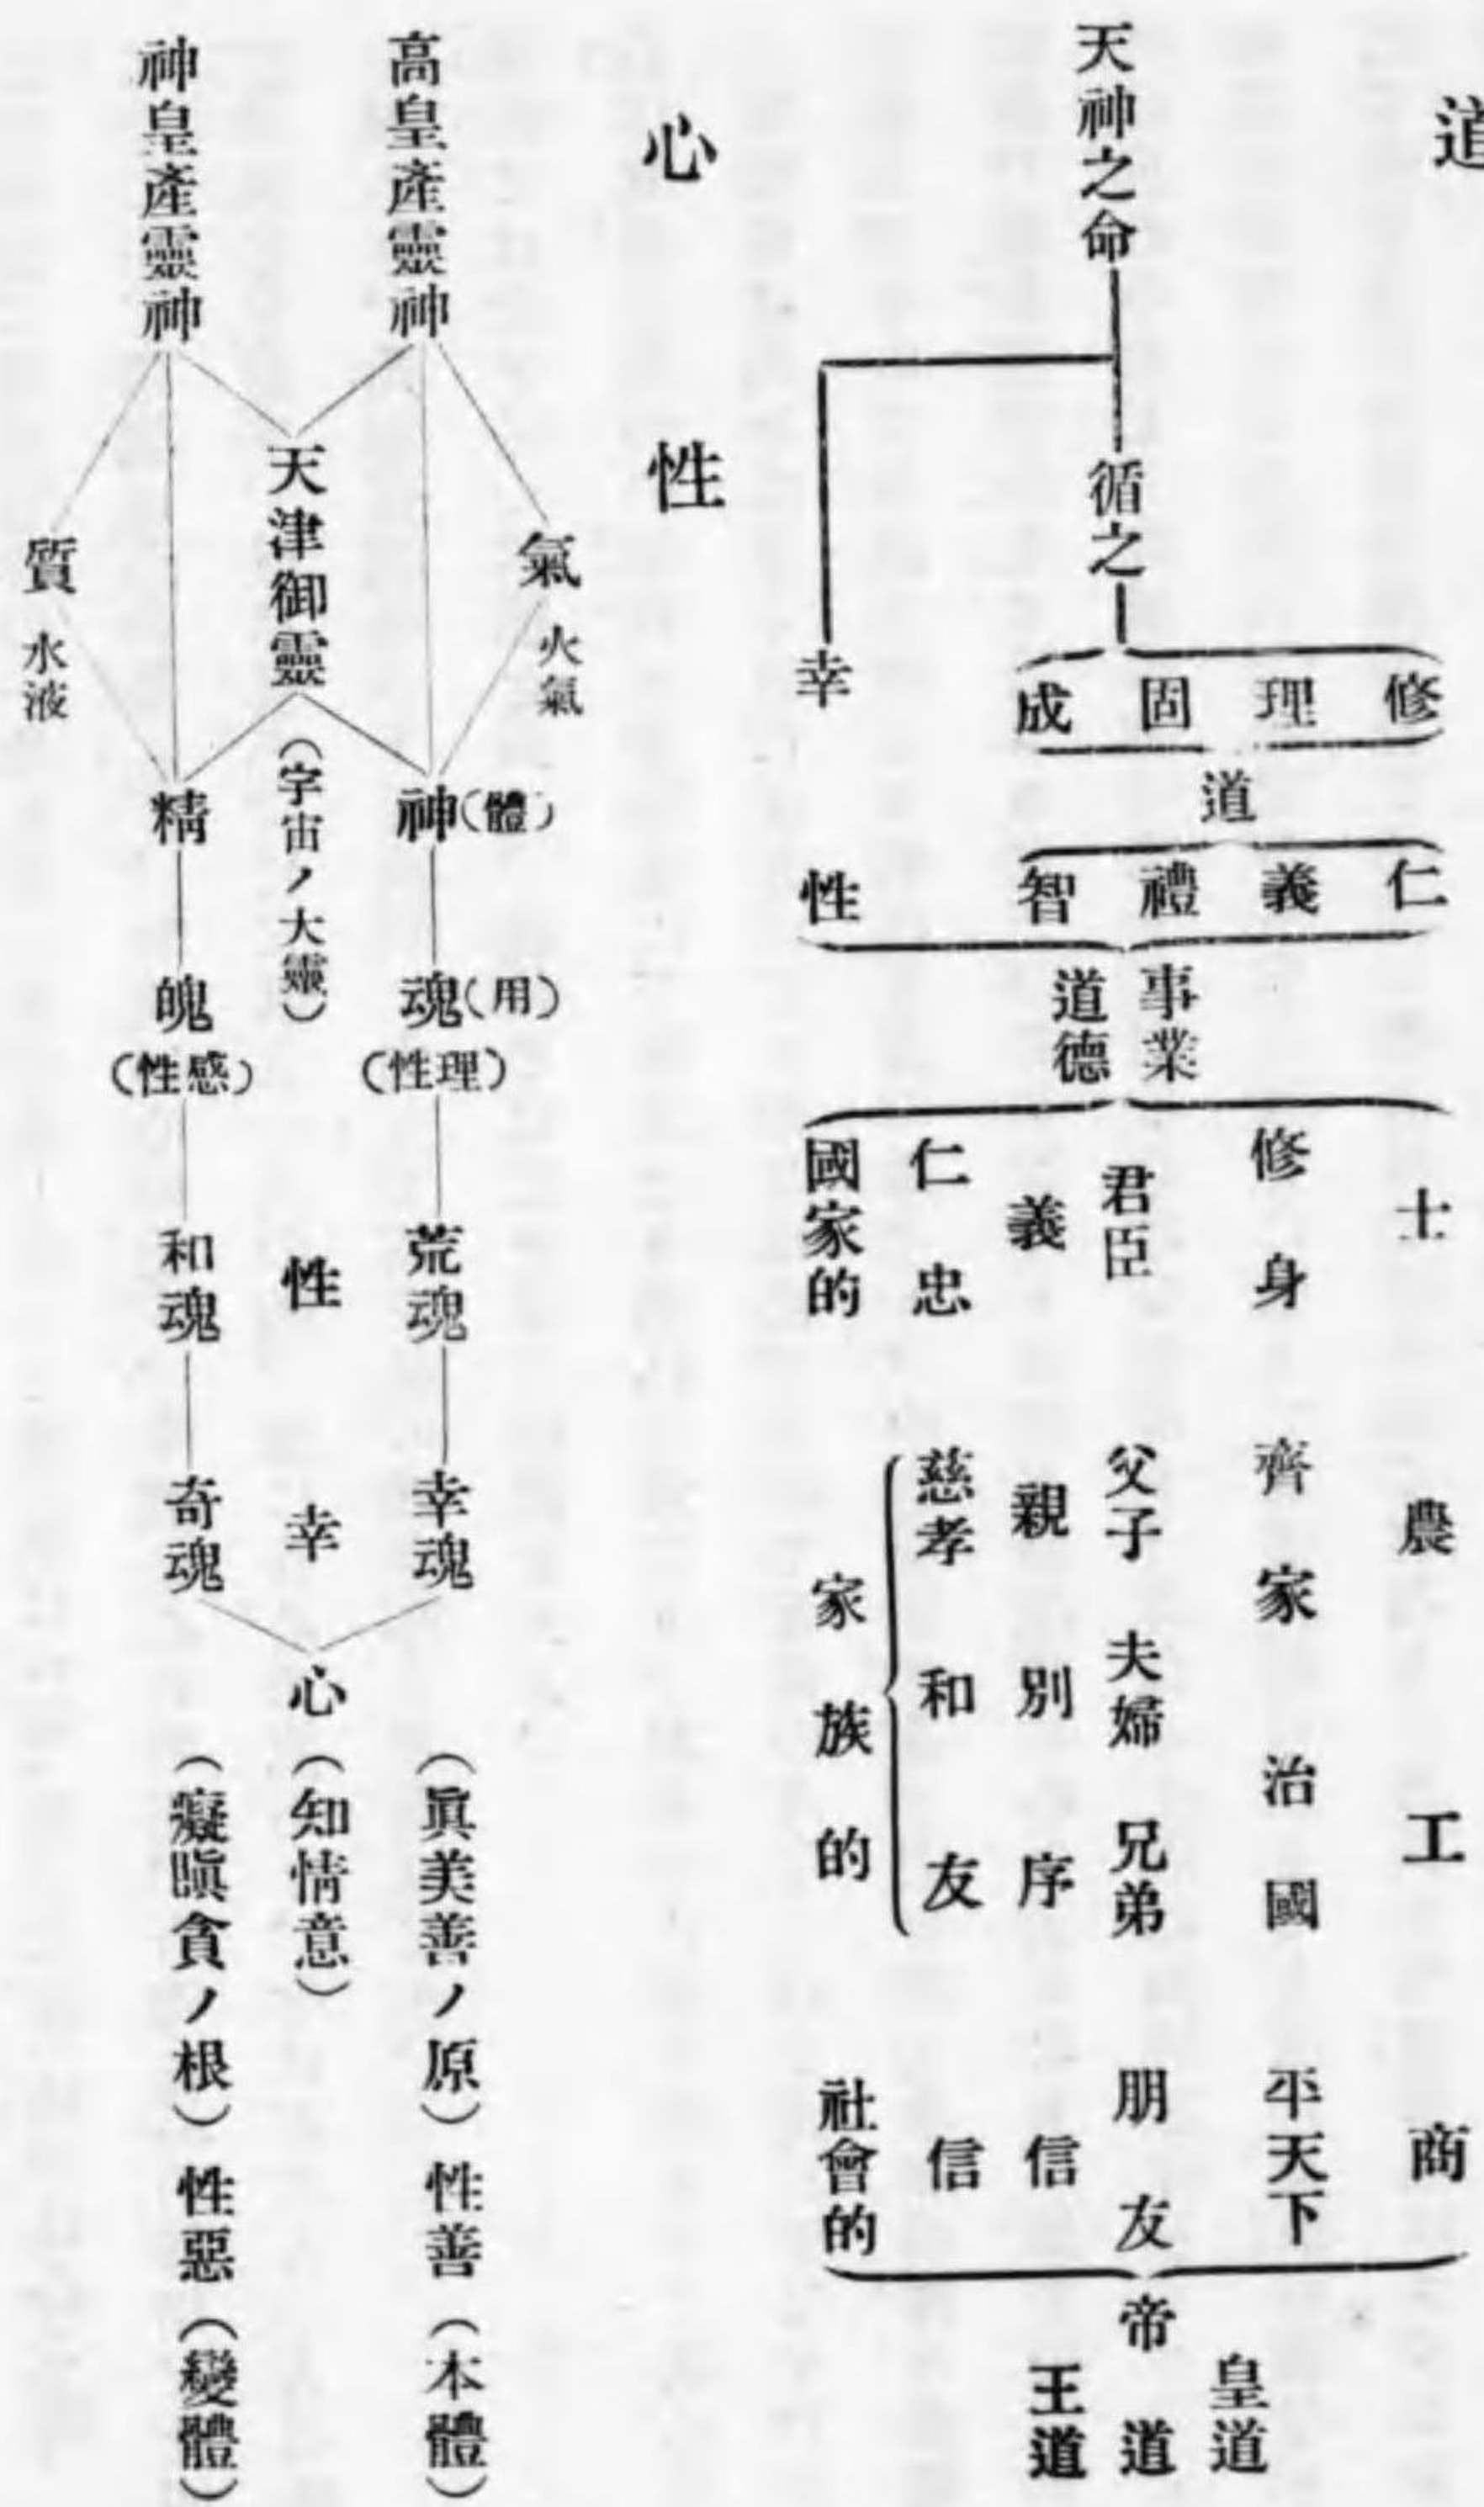 道
天神之命
循之
修理固成
道
幸
仁義禮智
性
事業
道德
士 農 工 商
修身 齊家 治國 平天下
君臣 父子 夫婦 兄弟 朋友
義 親 別 序 信
仁忠 慈孝 和 友 信
國家的 家族的 社會的
皇道
帝道
王道
心性
高皇產靈神
神皇產靈神
氣 火氣
天津御靈
(宇宙ノ大靈)
質 水液
神(體)
精
魂(用)
(性理)
魄
(性感)
荒魂
性
和魂
幸魂
幸
奇魂
心
(眞美善ノ原) 性善 (本體)
(知情意)
(癡瞋貪ノ根) 性惡 (變體)